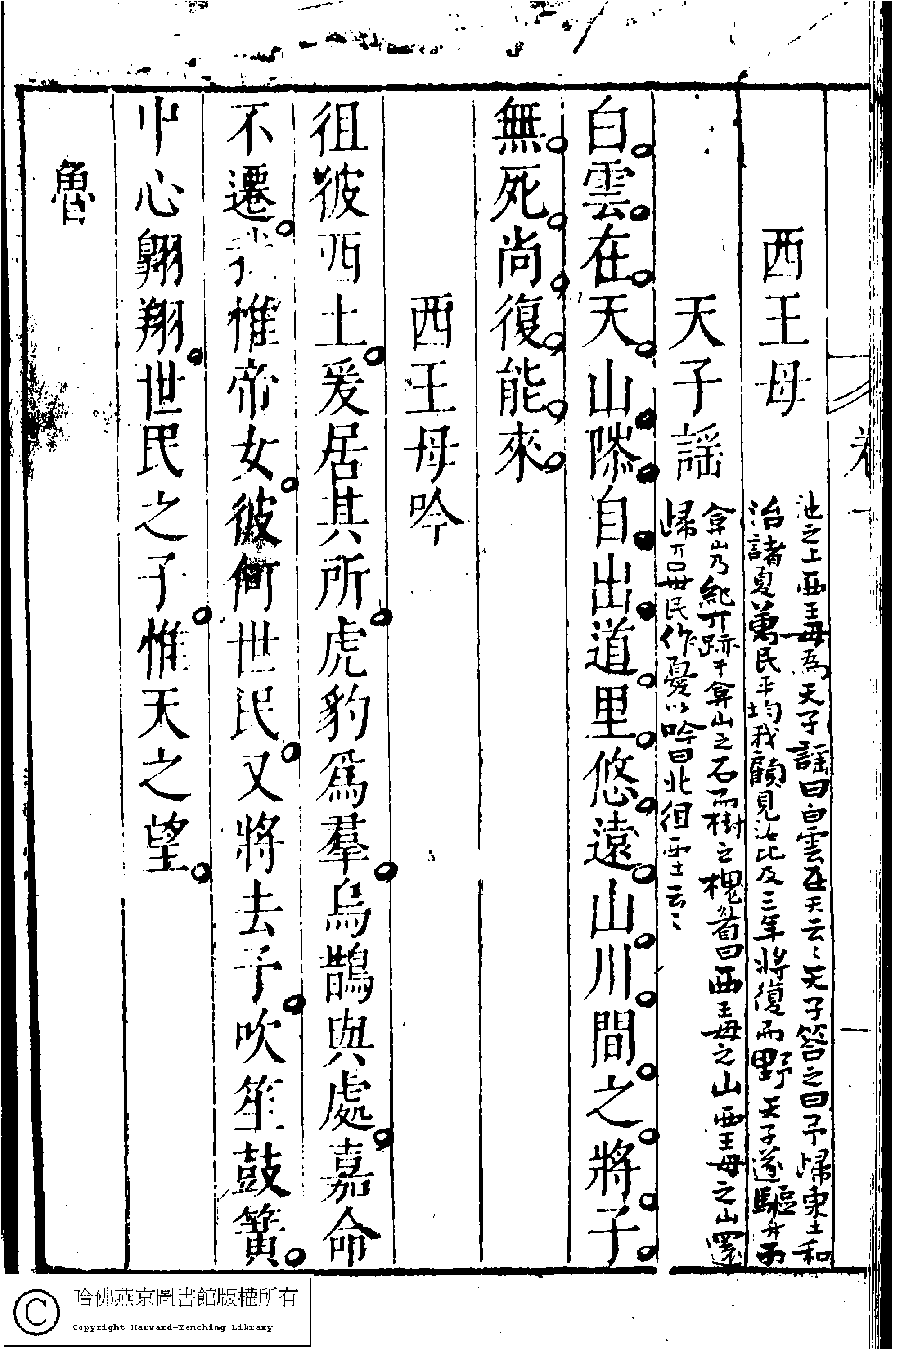 西王母
池之上西王母為天子謠曰白雲在天云〻天子答之曰予歸東土和
治諸夏萬民平均我顧見汝比及三年將復而野天子遂驅升而
天子謠
弇山乃紀丌跡于弇山之石而樹之槐眉曰西王母之山西王母之山還
歸丌口世民作憂以吟曰北徂西土云〻
白雲在天山𨻶自出道里悠遠山川間之將子
無死尚復能來
西王母吟
徂彼西土爰居其所虎豹爲羣烏鵲與處嘉命
不遷我惟帝女彼何世民又將去予吹笙鼓簧
中心翱翔世民之子惟天之望
魯
哈佛燕京圖書館版權所有
Copyright Harvard-Yenching Library